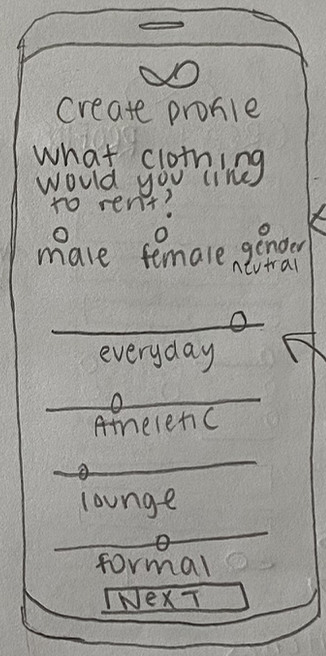 Create profile
What clothing
would you like
to rent?
male female gender
neutral
everyday
Atheletic
lounge
formal
Next